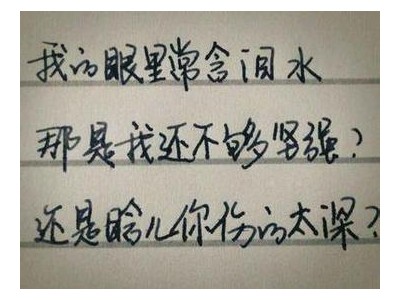 我的眼里常含泪水
那是我还不够坚强？
还是晗儿你伤的太深？